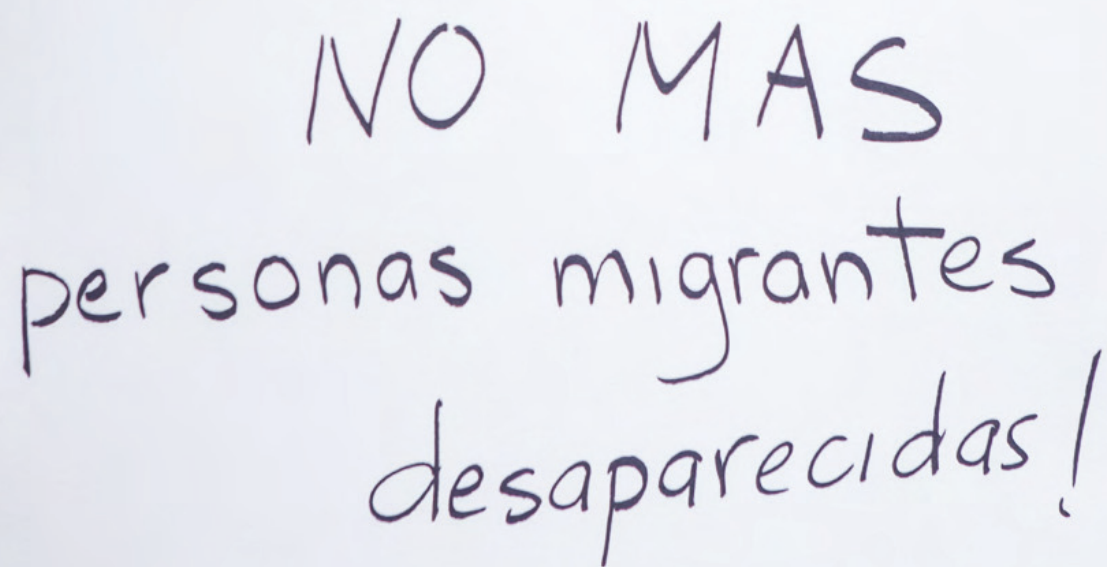 NO MAS
personas migrantes
desaparecidas!